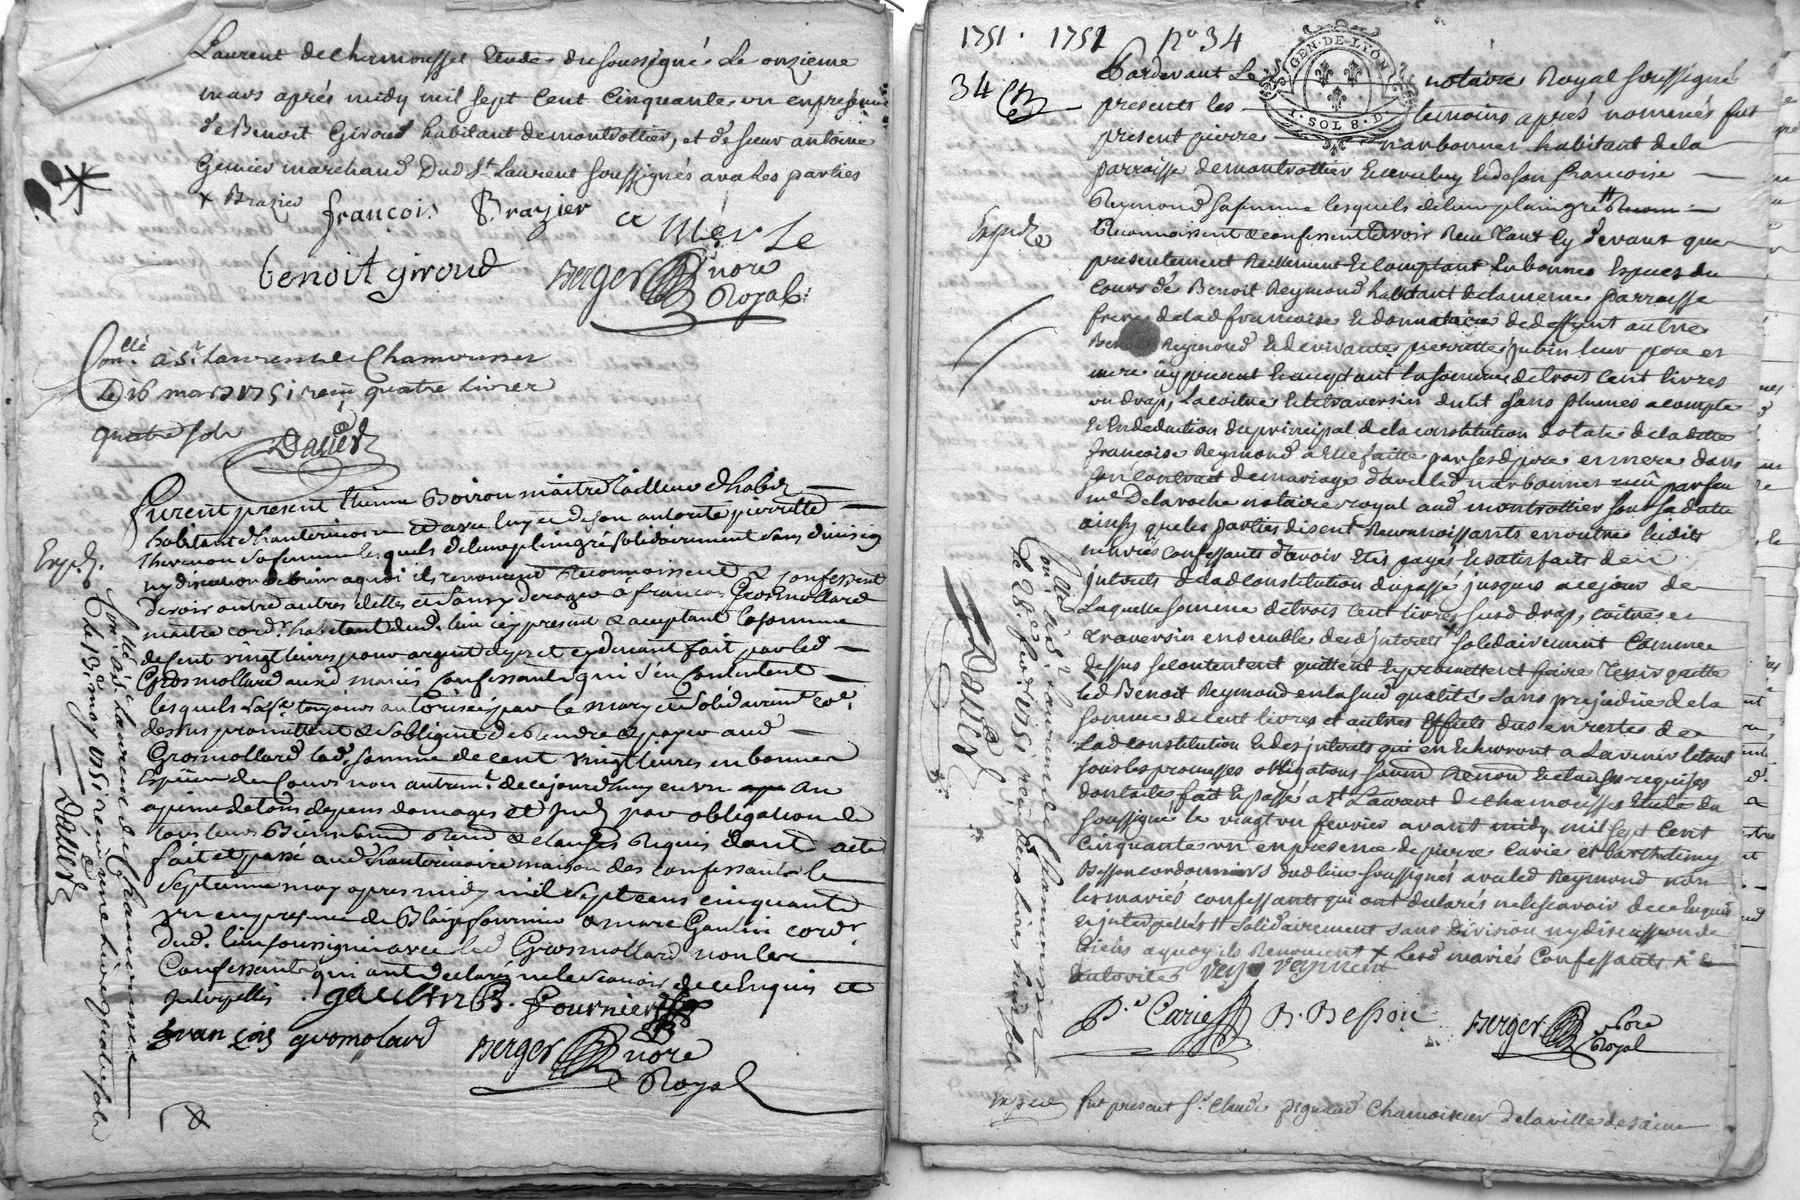 Laurent de Chamousset Etude du soussigné le onzieme
mars aprés midy mil sept Cent Cinquante un en presence
de Benoit Giroud habitant de montrottier, et de sieur antoine
marchand dud St. Laurent soussignés avec les parties
x Brazier françois Brazier a merle
benoit giroud Berger nore
Royal
Conllé à St. Laurens de Chamousset
Le 16 mars 1751 reçu quatre livres
quatre sols
Dauier
furent present Etienne Boiron maitre tailleur d'habits
habitant d'hauterivoire et avec luy et de son autorité pierrette
Thevenon sa femme lesquels de leur plein gré solidairement sans division
ny discution de bien a quoi ils renoncent Reconnoissent & confessent
devoir outre autres dettes et sans y deroger à françois Grosmollard
maitre cordr. habitant dud. lieu icy present & acceptant la somme
de cent vingt livres pour argent de pret cy devant fait par led
Grosmollard auxd mariés confessants qui s'en contentent
lesquels lad. toujours autorisée par le mary et solidairemt. co.e
dessus promettent & s'obligent de rendre & payer aud
Grosmollard lad. somme de cent vingt livres en bonnes
Especes du Cours non autremt. de cejourd'huy en un an
a peine de tous depens domages et par obligation de
tous leurs Biens & clauses Requis dont acte
fait et passé aud. hauterivoire maison des confessants le
septieme may apres midy mil sept cens cinquante
un en presence de Blaize fournier & marc Gaulin cordr
dud. lieu soussignés avec led Grosmollard non les
Confessants qui ont declaré ne le scavoir de ce Enquis et
Interpellés . gaulin fournier
François gromolard Berger nore
Royal
Exped.
Conllé à St. Laurens de Chamousset
Le 18 may 1751 reçu une livre quatre sols
Dauier
1751 . 1752 No 34
34
GEN. DE LYON
SOL 8. D.
Pardevant Le notaire Royal soussigné
presents les temoins aprés nommés fut
present pierre narbonnes habitant de la
parroisse de montrottier Et avec luy Et de son françoise
Reymond sa femme lesquels de leur plein gré #
Reconnoissent & confessent avoir Receu tant cy devant que
presentement Reellement & comptant en bonnes Especes du
cours de Benoit Reymond habitant de la meme parroisse
frere de lad françoise & donnataire de deffunt autre
Reymond & de vivante pierrette Jubin leur pere et
mere icy present & acceptant la somme de trois Cent livres
un drap, la coitre & le traversin du lit sans plumes a compte
& En deduction du principal de la constitution dotale de la ditte
françoise Reymond a Elle faitte par sesd pere et mere dans
son contrat de mariage d'avec led narbonnes reçu par feu
me. Delaroche notaire royal aud montrottier sous sa datte
ainsy que les parties disent Reconnoissants en outre lesdits
mariés confessants d'avoir Etés payés & satisfaits des
interets de lad constitution du passé jusques a ce jour de
laquelle somme de trois Cent livres susd drap, coitre et
traversin ensemble desd interets solidairement comme
dessus se contentent quittent & promettent faire tenir quitte
led Benoit Reymond en la susd qualité sans prejudice de la
somme de cent livres et autres Effets dus en restes de
lad constitution & des interets qui en Echevront a lavenir le tout
sous les promesses obligations soumd Renond & clauses requises
dont acte fait & passé a St. Laurant de Chamousset Etude du
soussigné le vingt un fevrier avant midy mil sept Cent
Cinquante un en presence de pierre Carie et barthelemy
Besson cordonniers dud lieu soussignés avec led Reymond non
les mariés confessants qui ont declarés ne le scavoir de ce Enquis
& interpellés # solidairement sans division ny discussion de
biens a quoy ils Renoncent x Lesd mariés Confessants
autorité
P. Carie B. Besson Berger nore
Royal
Exped
Conllé à St. Laurens de Chamousset
Le 28 fevr. 1751 reçu deux livres huit sols
Dauier
Exped fut present Sr. Claude pignard Chamoiseur de la ville de saint